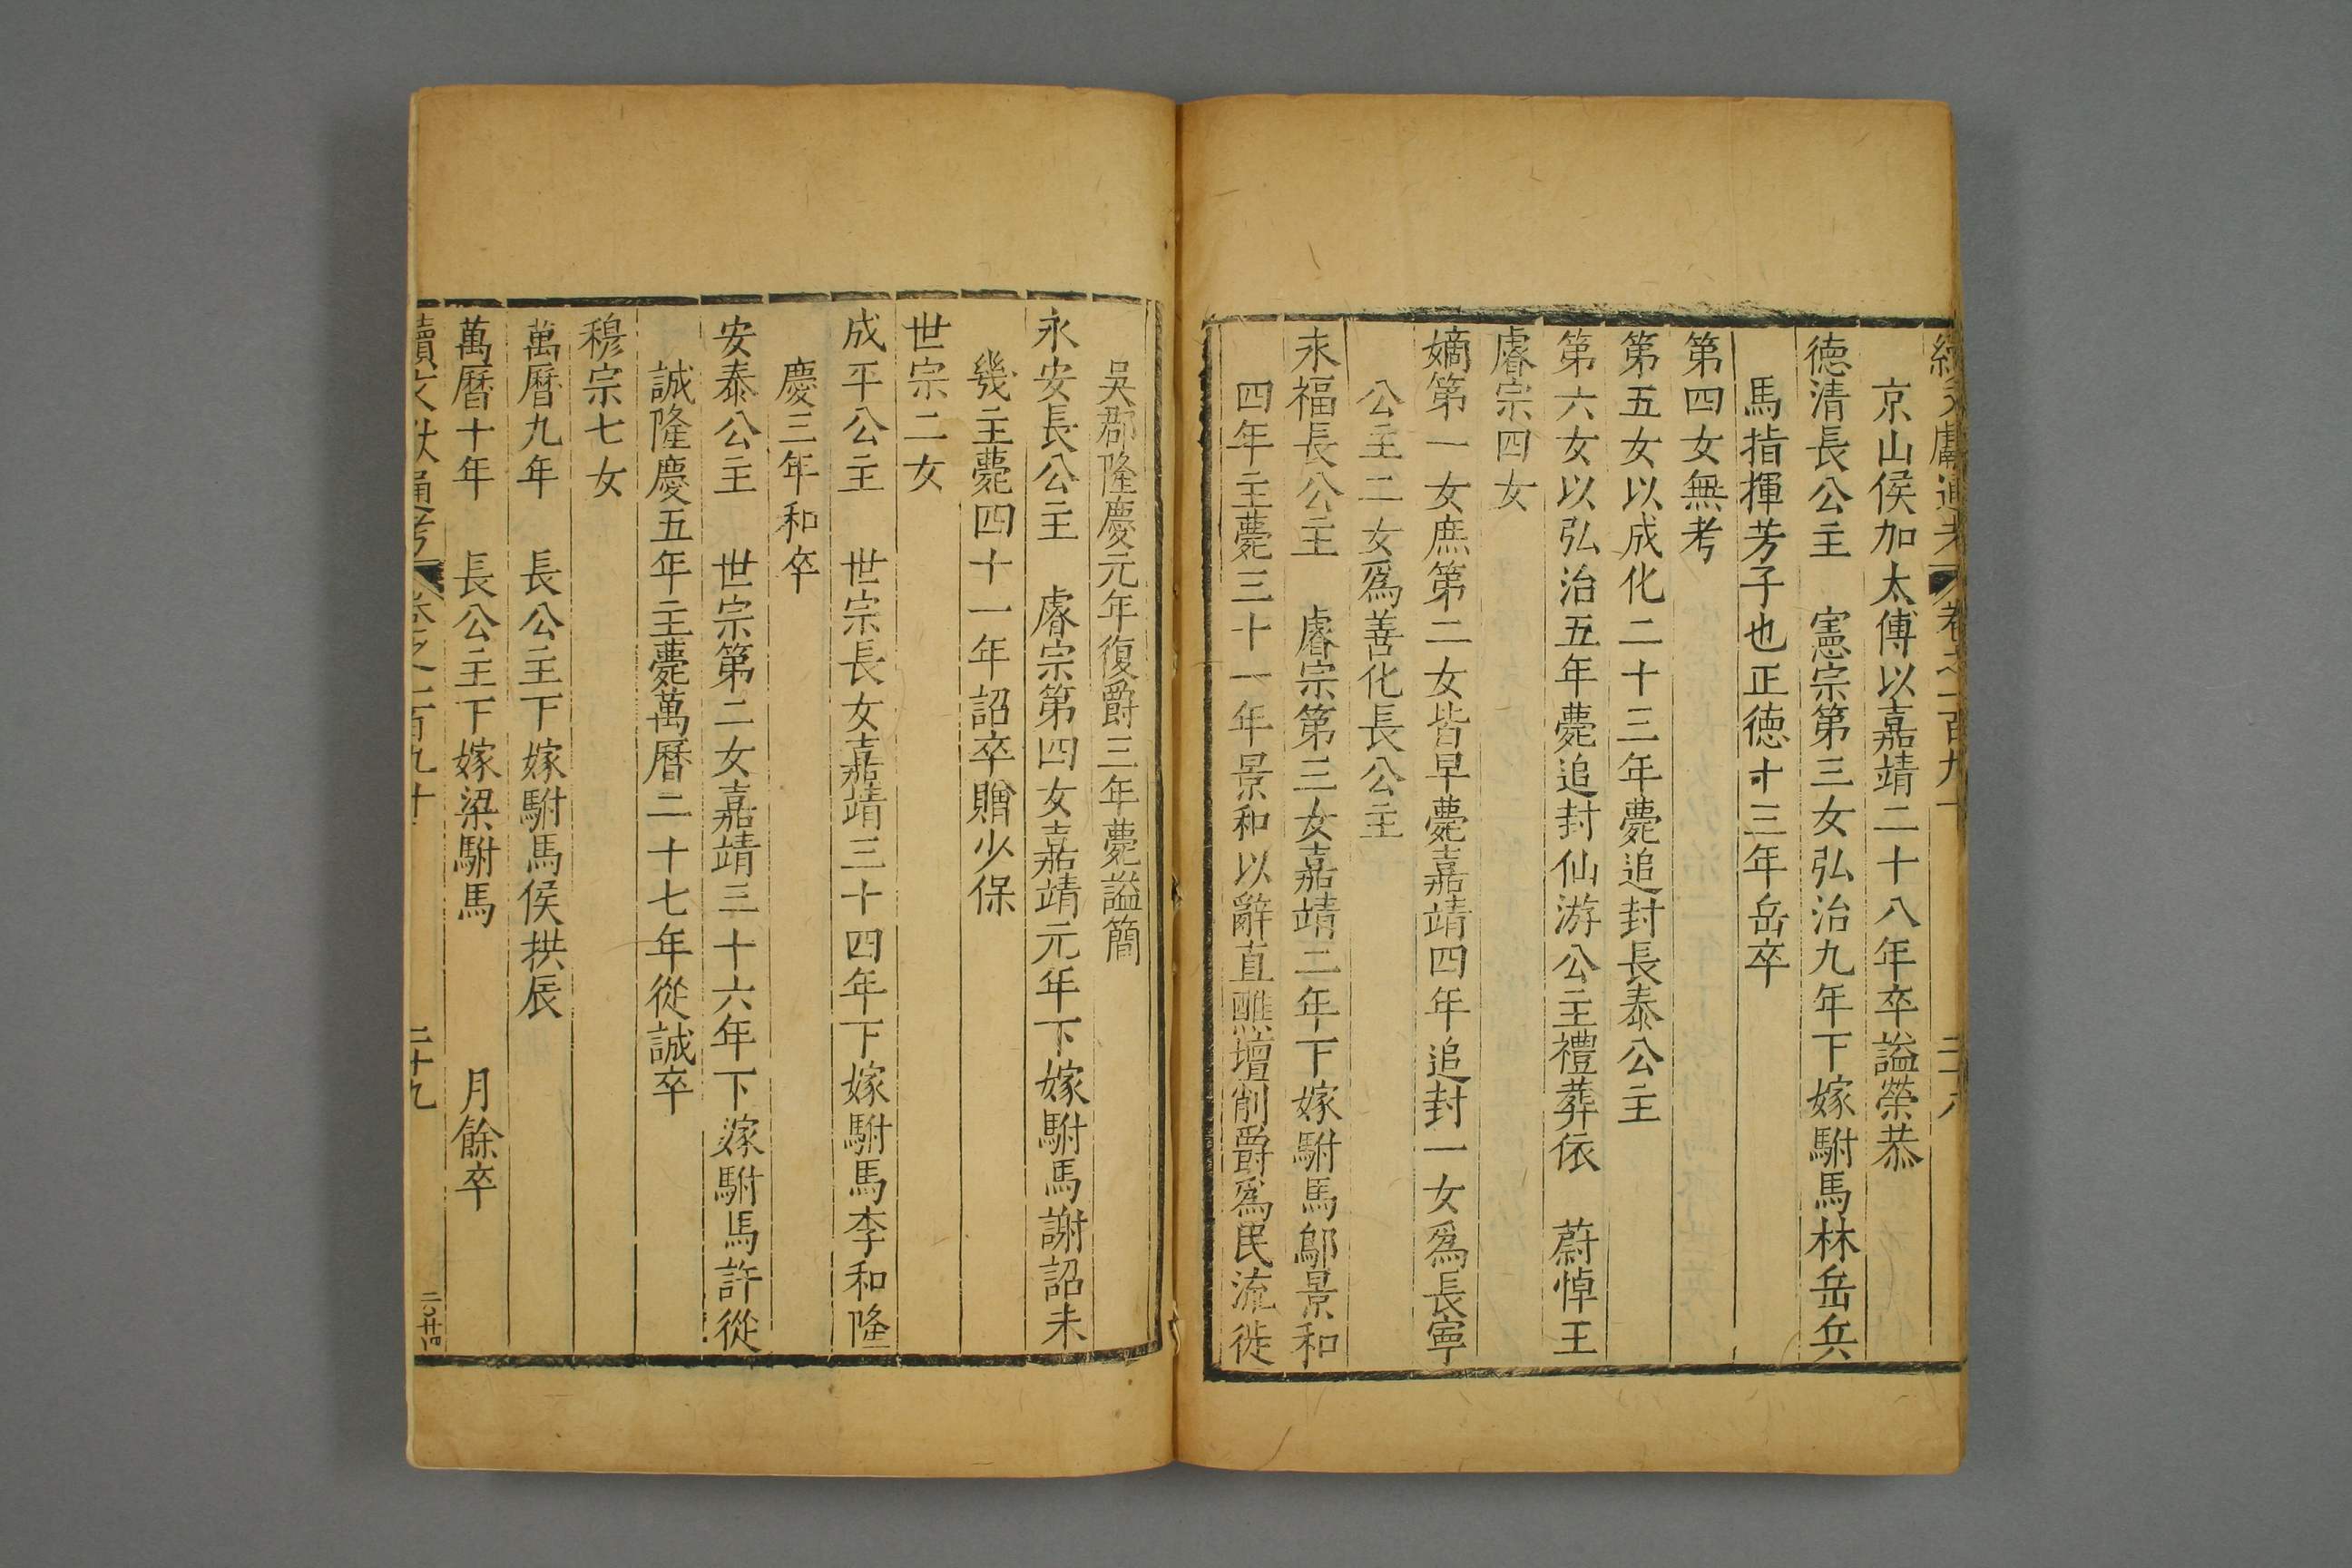 京山侯加太傅以嘉靖二十八年卒諡榮恭
德清長公主 憲宗第三女弘治九年下嫁駙馬林岳兵
馬指揮芳子也正德十三年岳卒
第四女無考
第五女以成化二十三年薨追封長泰公主
第六女以弘治五年薨追封仙游公主禮葬依 蔚悼王
睿宗四女
嫡第一女庶第二女皆早薨嘉靖四年追封一女爲長寧
公主二女爲善化長公主
永福長公主 睿宗第三女嘉靖二年下嫁駙馬鄔景和
四年主薨三十一年景和以辭直醮壇削爵爲民流徙
吳郡隆慶元年復爵三年薨謚簡
永安長公主 睿宗第四女嘉靖元年下嫁駙馬謝詔未
幾主薨四十一年詔卒贈少保
世宗二女
成平公主 世宗長女嘉靖三十四年下嫁駙馬李和隆
慶三年和卒
安泰公主 世宗第二女嘉靖三十六年下嫁駙馬許從
誠隆慶五年主薨萬曆二十七年從誠卒
穆宗七女
萬曆九年 長公主下嫁駙馬侯拱辰
萬曆十年 長公主下嫁梁駙馬 月餘卒
續文獻通考 卷之二百九十 二十九